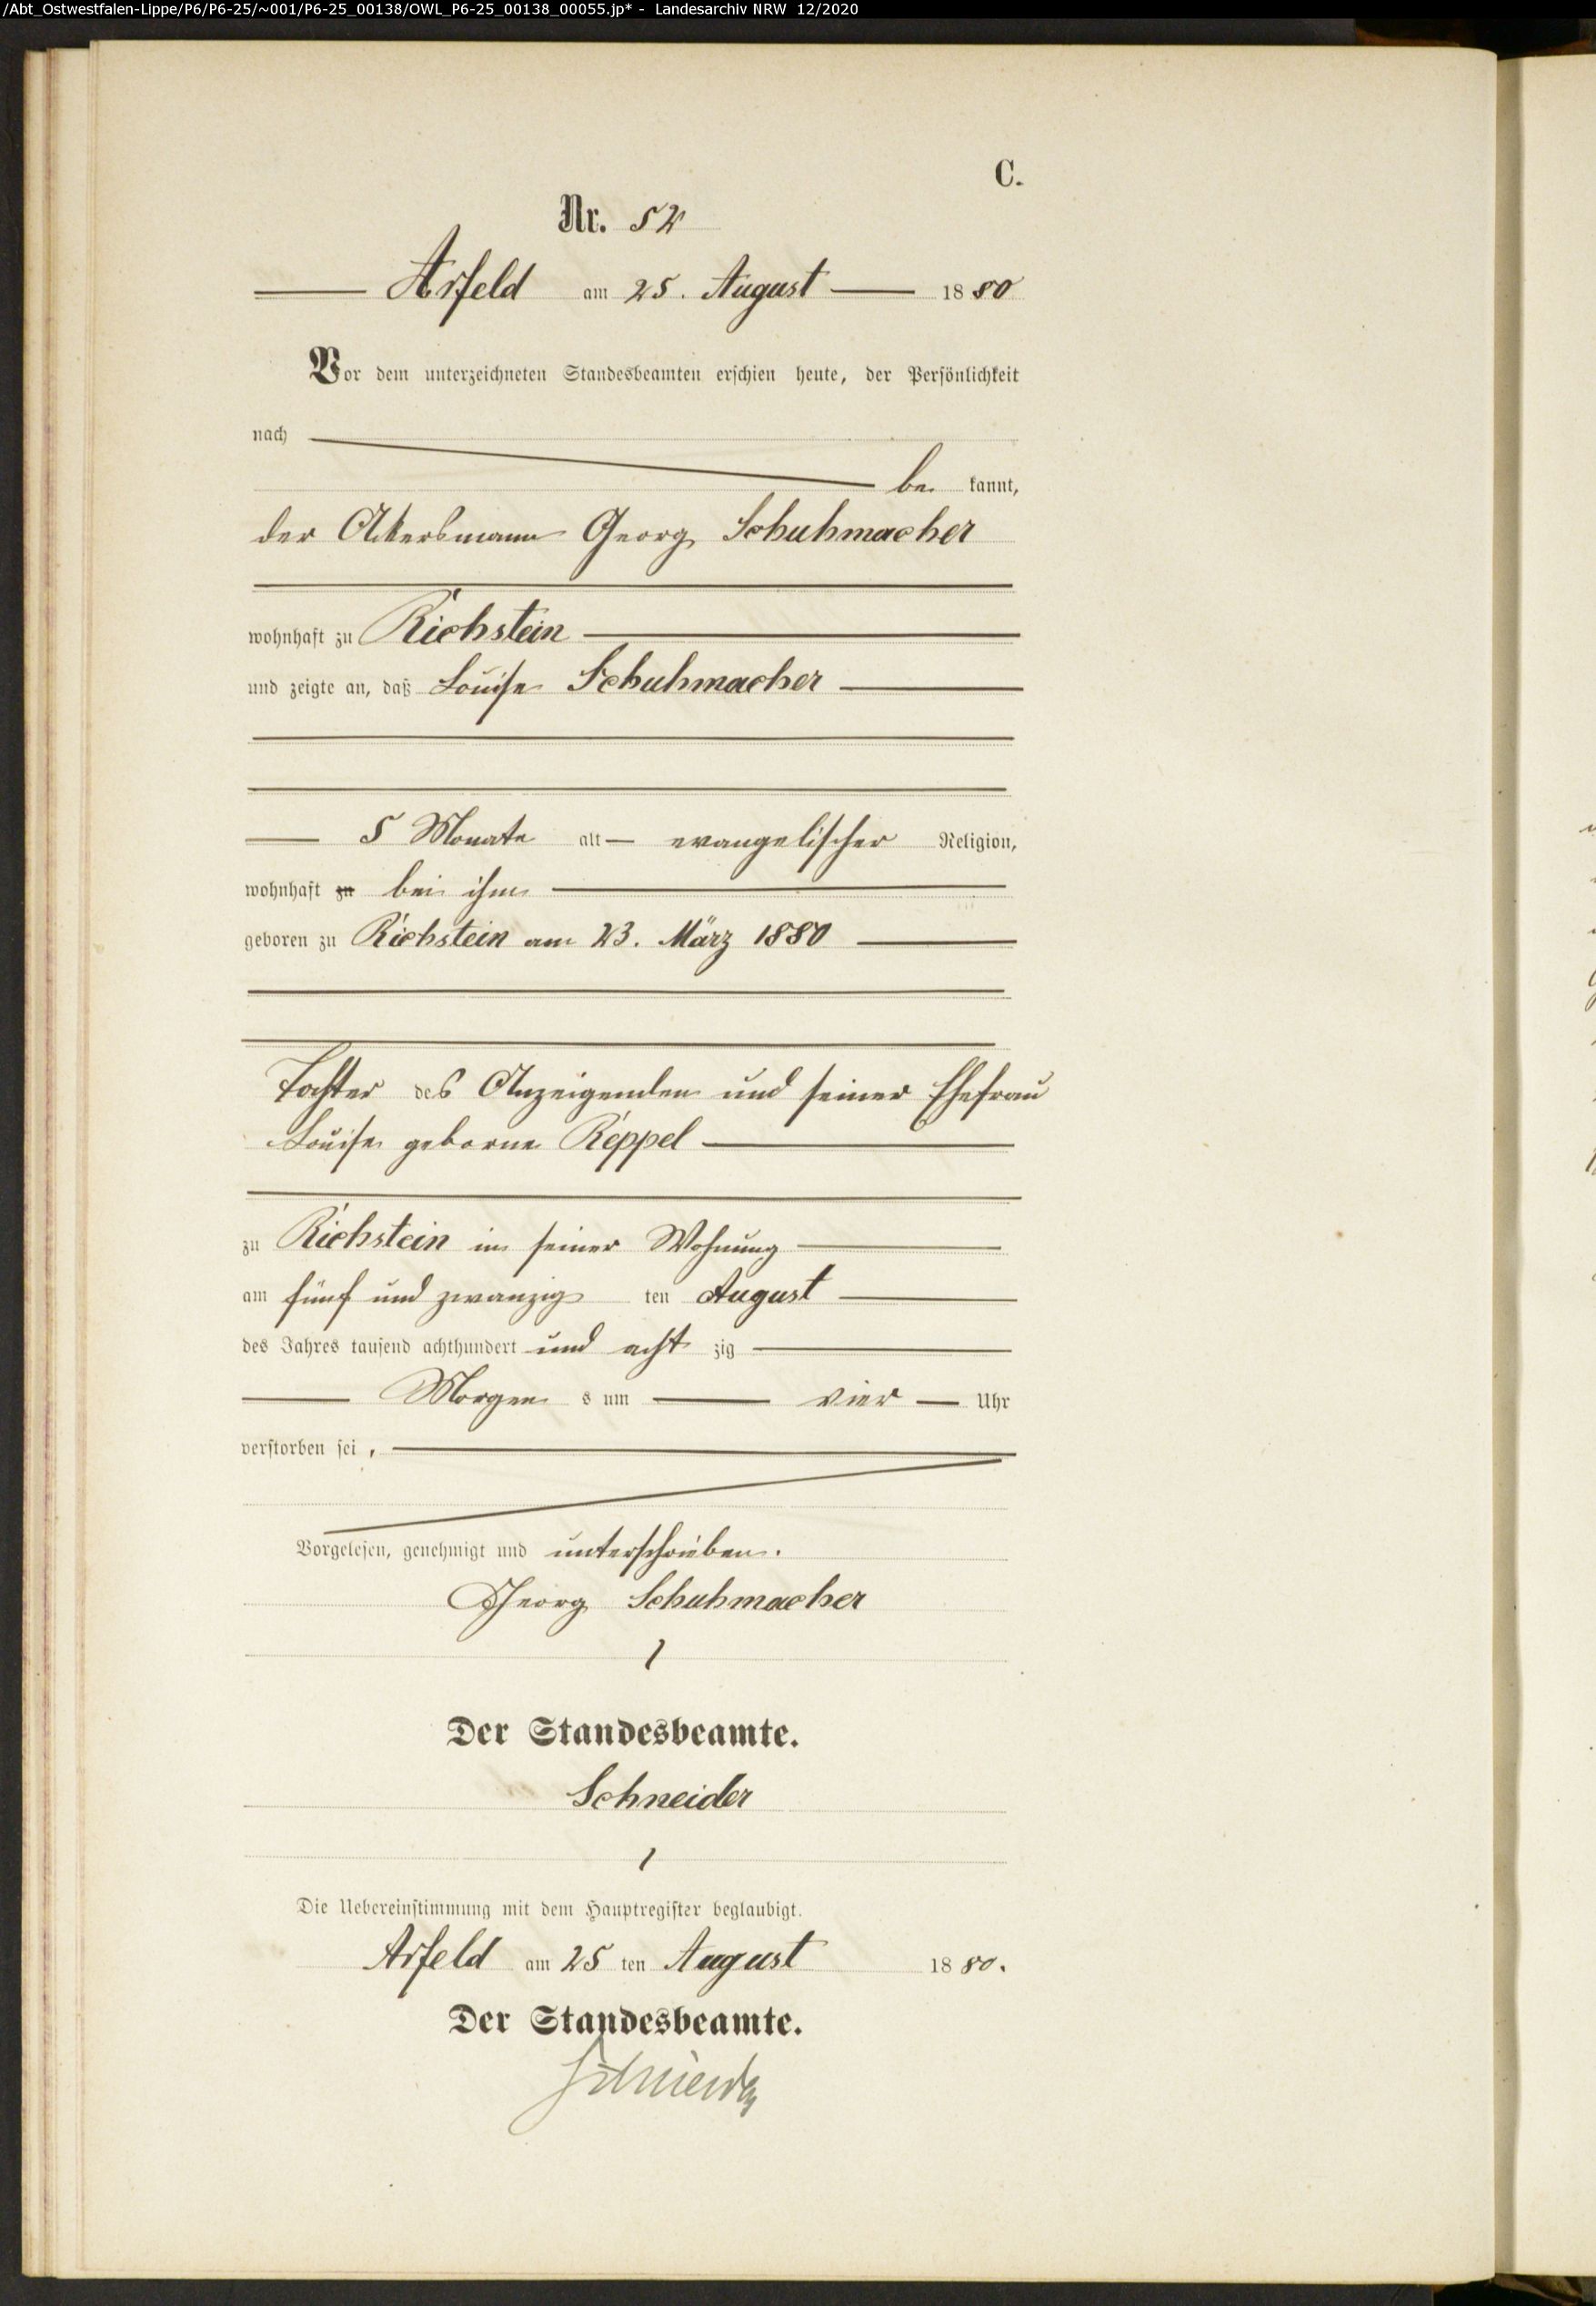 /Abt_Ostwestfalen-Lippe/P6/P6-25/~001/P6-25_00138/OWL_P6-25_00138_00055.jp* - Landesarchiv NRW 12/2020
C.
Nr. 52
Arfeld am 25. August 1880
Vor dem unterzeichneten Standesbeamten erschien heute, der Persönlichkeit
nach
be kannt,
der Ackersmann Georg Schuhmacher
wohnhaft zu Richstein
und zeigte an, daß Louise Schuhmacher
5 Monate alt evangelischer Religion,
wohnhaft zu bei ihm
geboren zu Richstein am 23. März 1880
Tochter des Anzeigenden und seiner Ehefrau
Louise geborne Reppel
zu Richstein in seiner Wohnung
am fünf und zwanzig ten August
des Jahres tausend achthundert und acht zig
Morgen s um vier Uhr
verstorben sei,
Vorgelesen, genehmigt und unterschrieben.
Georg Schuhmacher
Der Standesbeamte.
Schneider
Die Uebereinstimmung mit dem Hauptregister beglaubigt.
Arfeld am 25 ten August 1880.
Der Standesbeamte.
Schneider